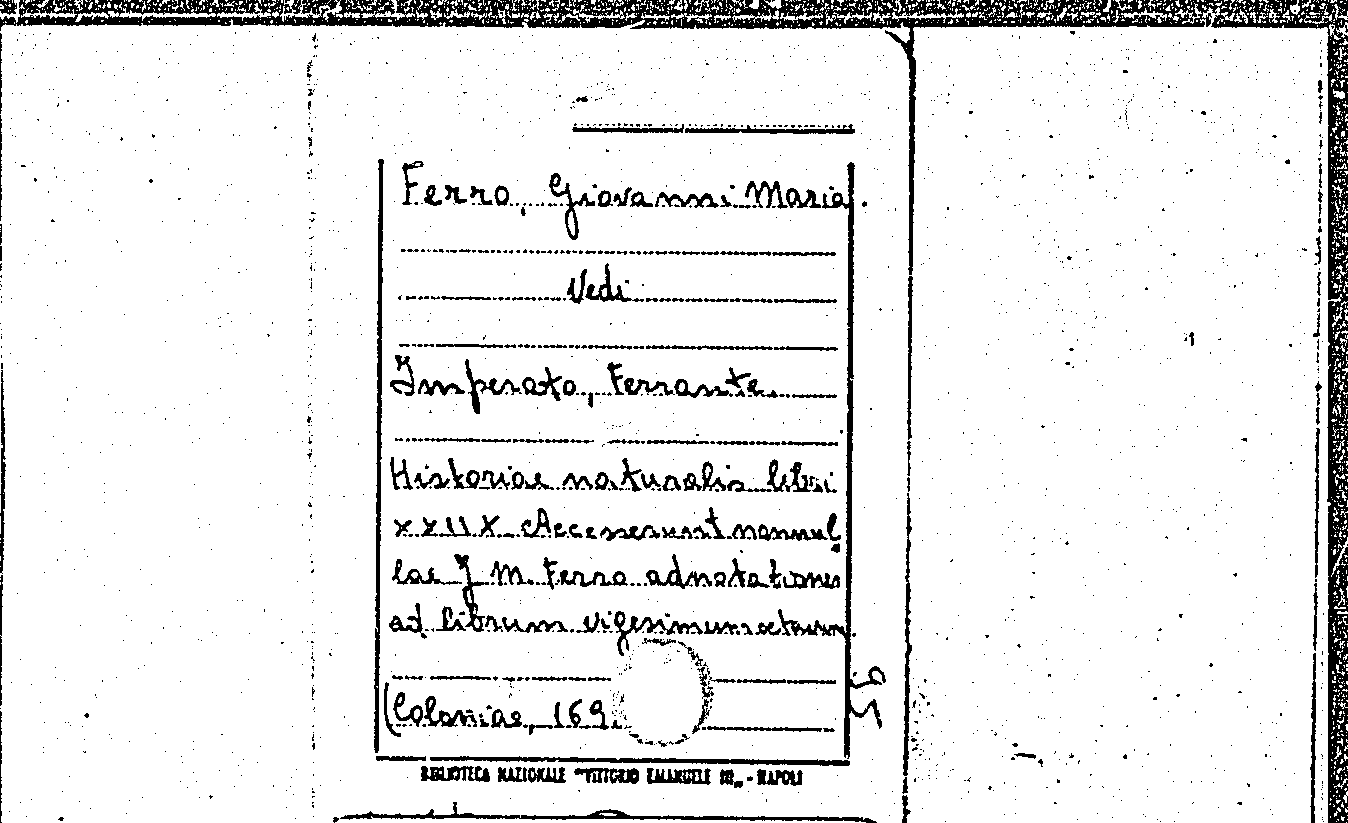 Ferro, Giovanni Maria.
Vedi
Imperato, Ferrante.
Historiae naturalis libri
XXIIX. Accesserunt nonnul
lae J M. Ferro adnotationes
ad librum vigesimumoctavum.
(Coloniae, 169
95
BIBLIOTECA NAZIONALE "VITTORIO EMANUELE III„ - NAPOLI